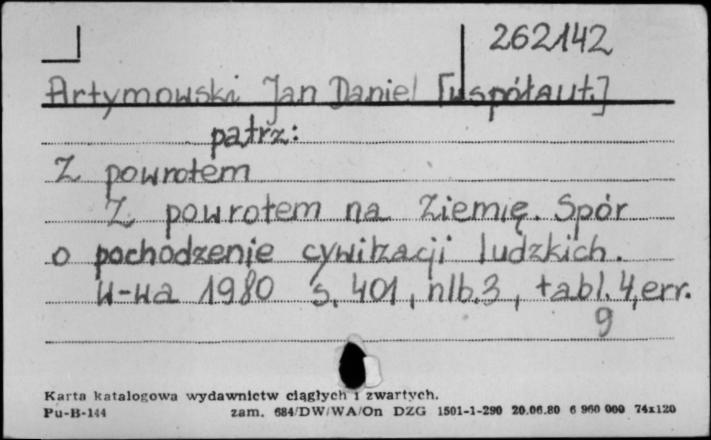 262142
Artymowski Jan Daniel [współaut.]
patrz:
Z powrotem
Z powrotem na Ziemię. Spór
o pochodzenie cywilizacji ludzkich.
W-wa 1980 s. 401, nlb. 3, tabl. 4, err.
9
Karta katalogowa wydawnictw ciągłych i zwartych.
Pu-B-144 zam. 684/DW/WA/On DZG 1501-1-290 20.06.80 6 960 000 74x120